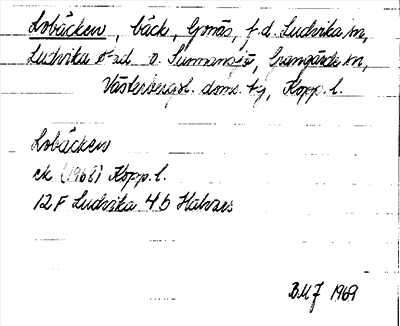 Lobäcken, bäck, Gonäs, f.d. Ludvika sn,
Ludvika stad o. Sunnansjö, Grangärde sn,
Västerbergsl. doms. tg, Kopp. l.
Lobäcken
ek (1968) Kopp. l.
12F Ludvika 4b Halvars
BMJ 1969